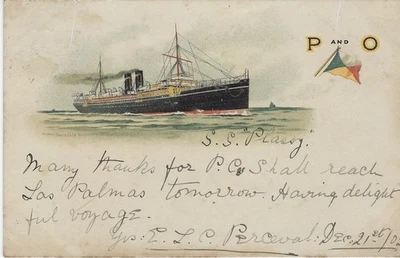 P AND O
S.S. "Plassy."
Many thanks for P.C. Shall reach
Las Palmas tomorrow. Having delight
ful voyage.
Yrs: E. L. C. Perceval: Dec. 21st/02